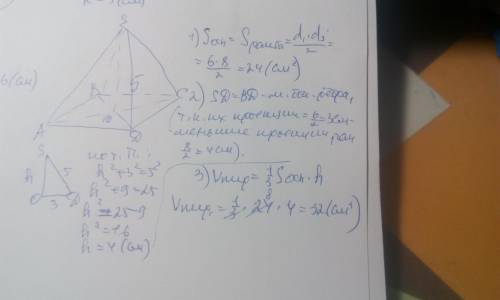 S
A
B
C
D
O
5
S
h
5
O
3
D
по т. П.:
h²+3²=5²
h²+9=25
h²=25-9
h²=16
h=4 (см)
1) Sосн = Sромба = d₁·d₂/2 =
= 6·8/2 = 24 (см²)
2) SD=BD - м. бок. ребра,
(т.к. их проекции = 6/2 = 3см -
меньшие проекции, чем
8/2 = 4см).
3) Vпир = 1/3 Sосн · h
Vпир. = 1/3 · 24 · 4 = 32 (см³)
8